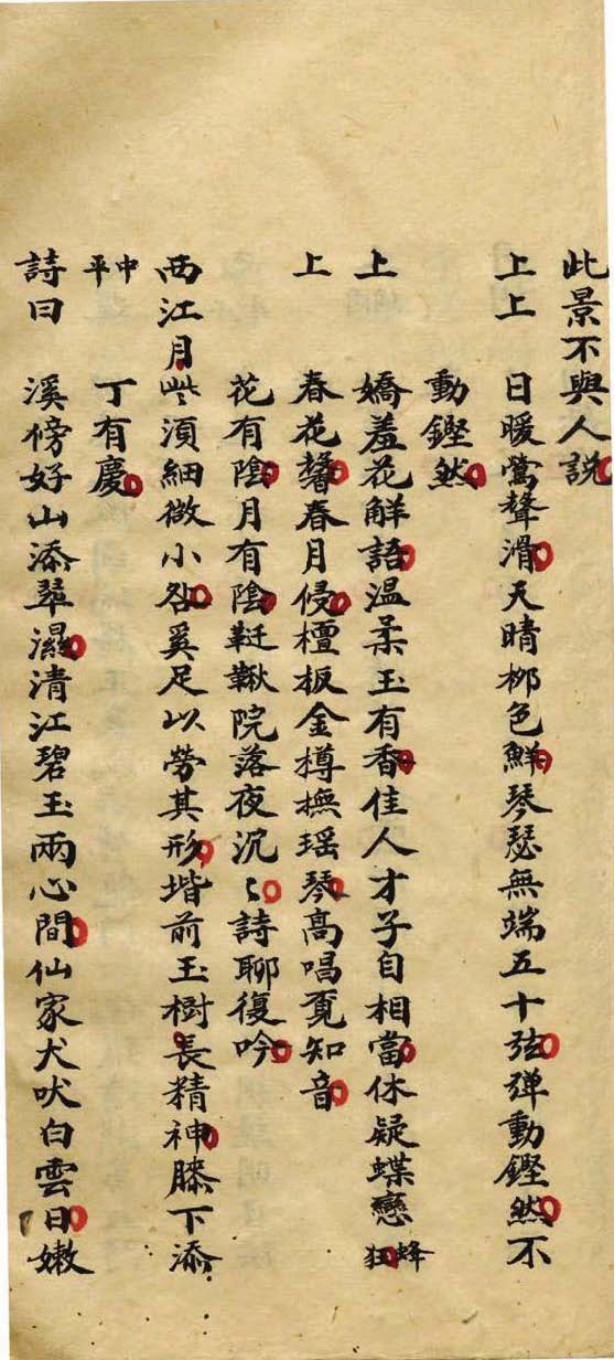 此景不與人説
上上 日暖鶯聲滑天晴栁色鮮琴瑟無端五十弦弹動鏗然不
動鏗然
上 嬌羞花觧語温柔玉有香佳人才子自相當休疑蝶戀蜂狂
上 春花馨春月侵檀板金樽撫瑶琴髙唱覔知音
花有隂月有隂鞓鞦院落夜沉〻詩聊復吟
西江月 些湏細微小咎奚足以勞其形堦前玉樹長精神膝下添
中平 丁有慶
詩曰 溪傍好山添翠濕清江碧玉兩心間仙家犬吠白雲日嫩